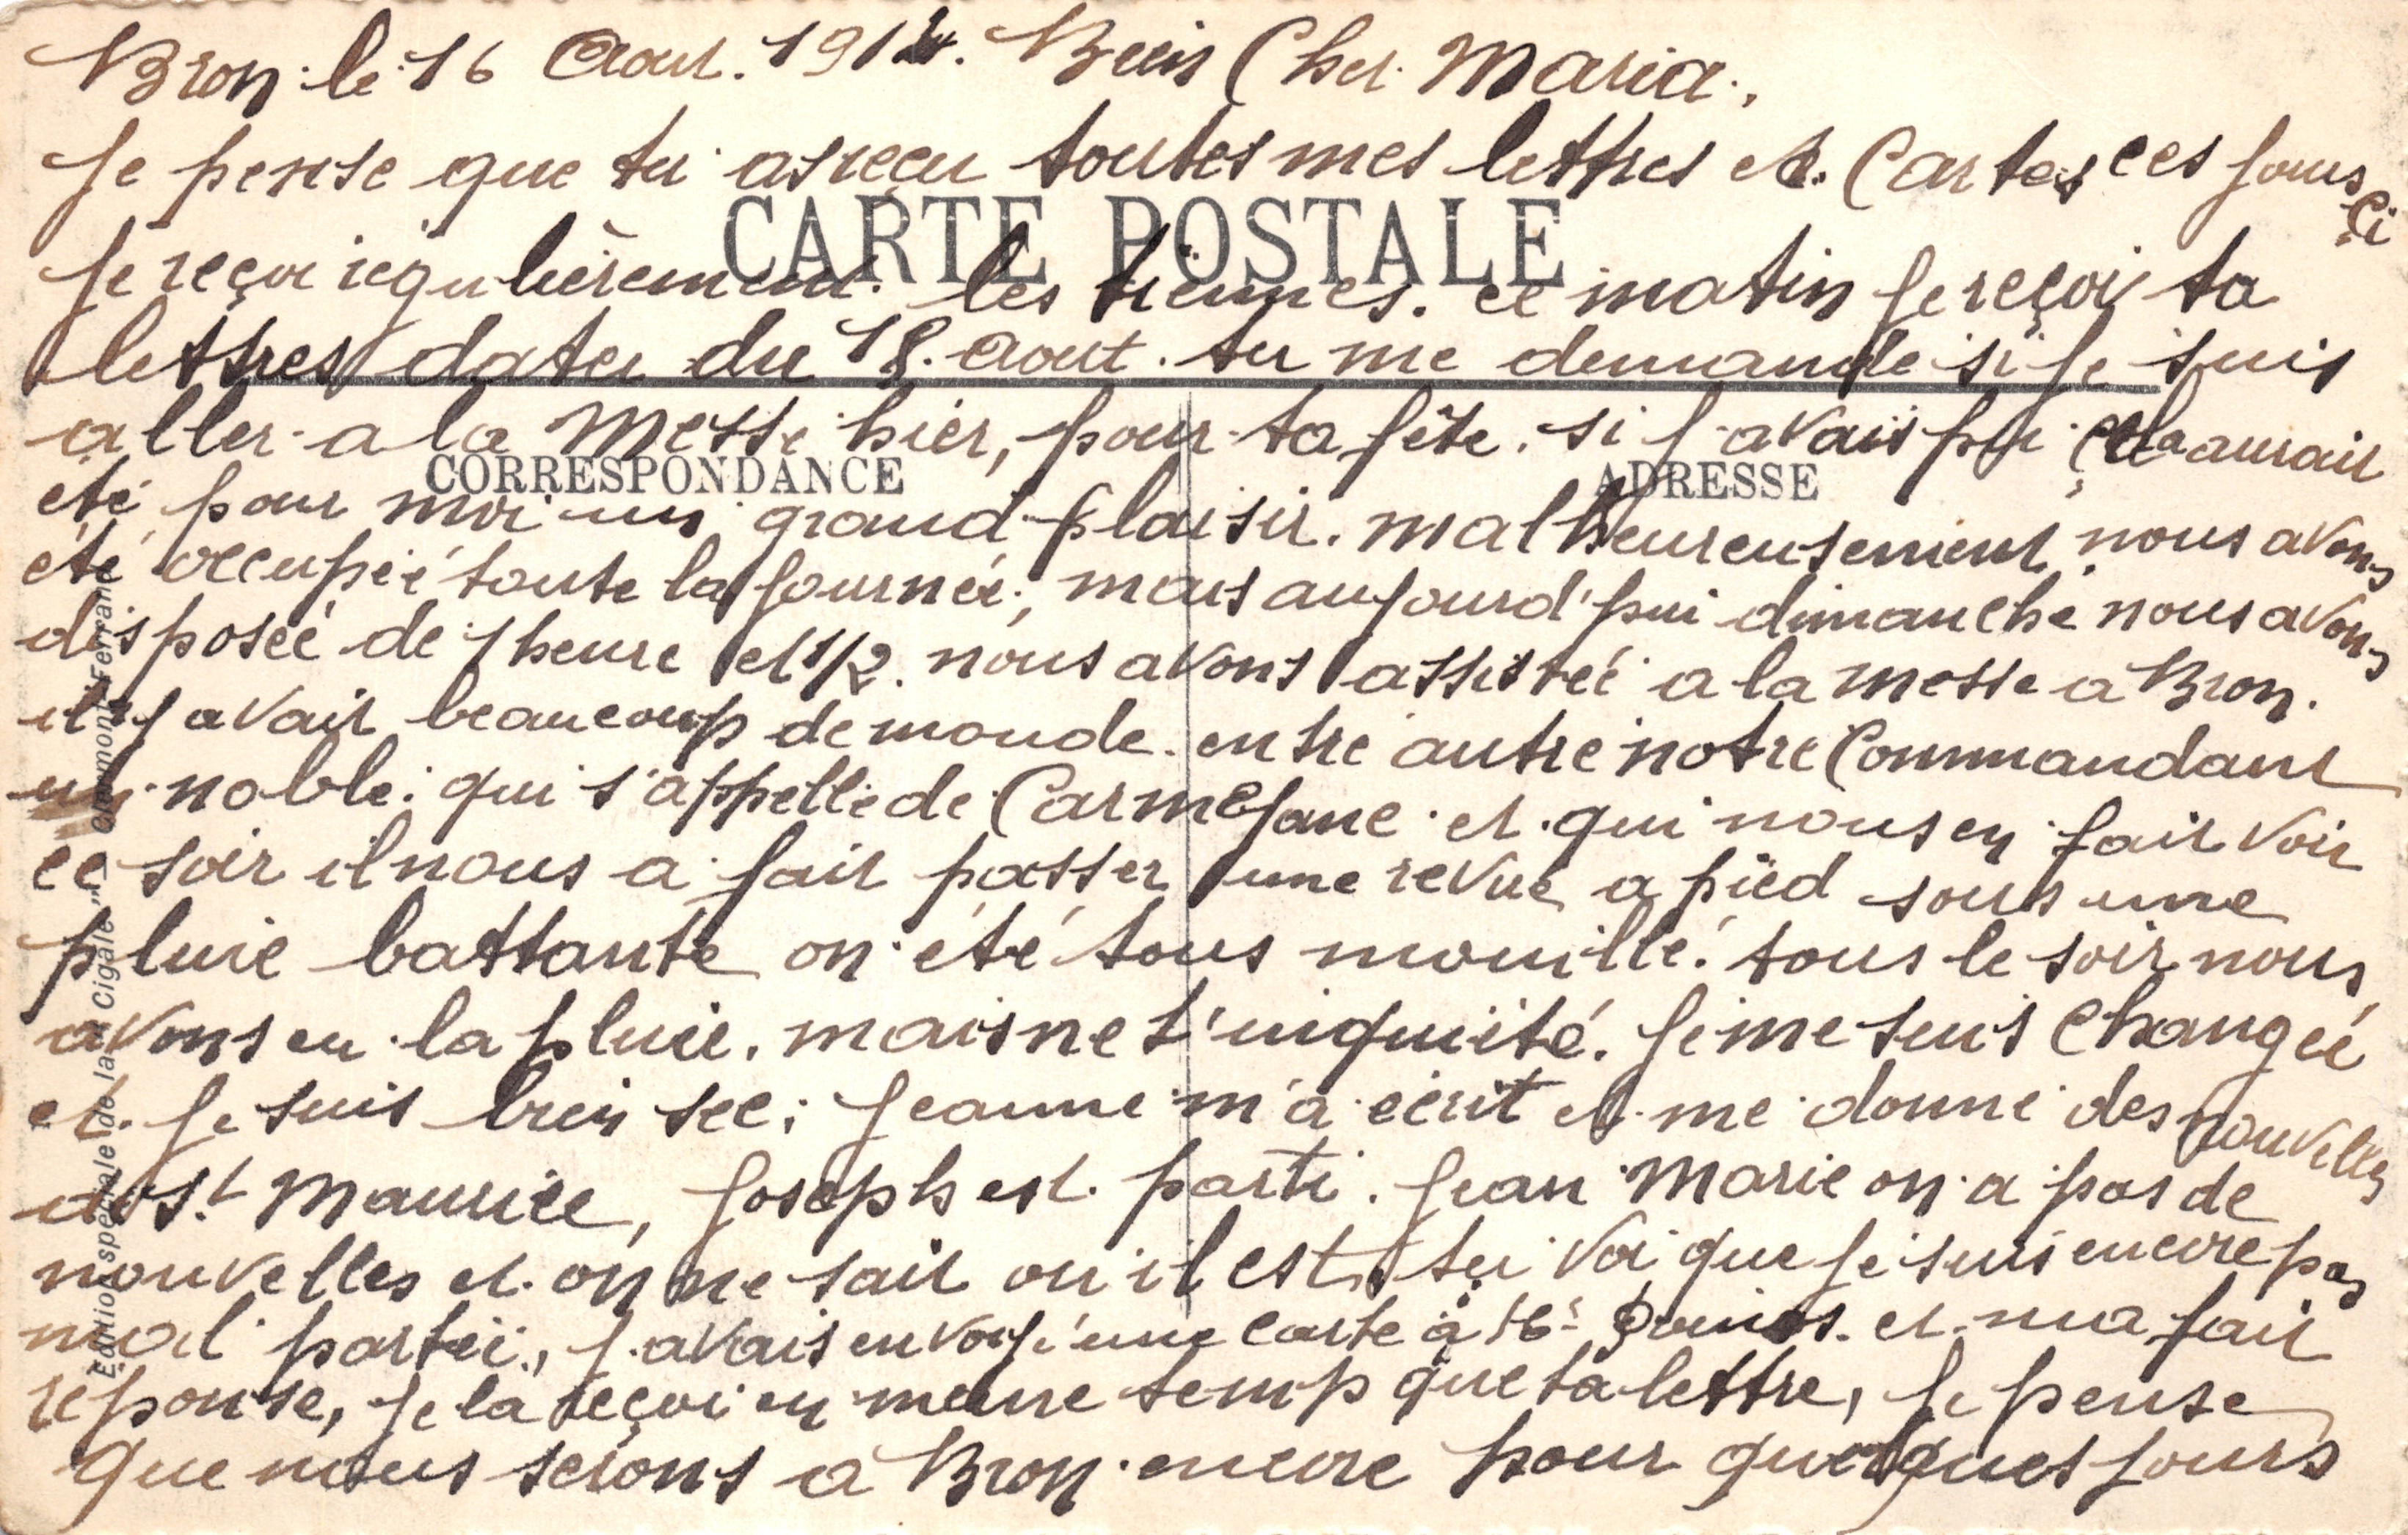 Bron le 16 Aout. 1914. Bien Cher Maria.,
Je pense que tu as reçu toutes mes lettres et. Cartes ces jours ci
CARTE POSTALE
Je reçoi régulièrement. les tiennes. ce matin je reçoi ta
lettres dater du 18. Aout. tu me demande si je suis
aller a la Messe hier, pour ta fête. si j'avais pu cela aurait
CORRESPONDANCE
ADRESSE
été pour moi un grand plaisir. malheureusement nous avons
été occupée toute la journée, mais aujourd'hui dimanche nous avons
disposée de 1 heure et 1/2. nous avons assistée a la messe a Bron.
il y avait beaucoup de monde. entre autre notre Commandant
un noble. qui s'appelle de Carmejane et. qui nous en fait voir
ce soir il nous a fait passer une revue a pied sous une
pluie battante on été tous mouillé. tous le soir nous
avons eu la pluie. mais ne t'inquiité. Je me suis changée
et. Je suis bien sec; Jeanne m'a écrit et me donne des nouvelles
de St Maurice, Joseph est. parti. Jean Marie on a pas de
nouvelles et. on ne sait ou il est, tu voi que je suis encore pas
mal partéi., J'avais envoyé une carte à et. ma fait
reponse, je la reçoi en meme temp que ta lettre, Je pense
que nous serons a Bron encore pour quelques jours
Edition spéciale de la "Cigale", Clermont-Ferrand